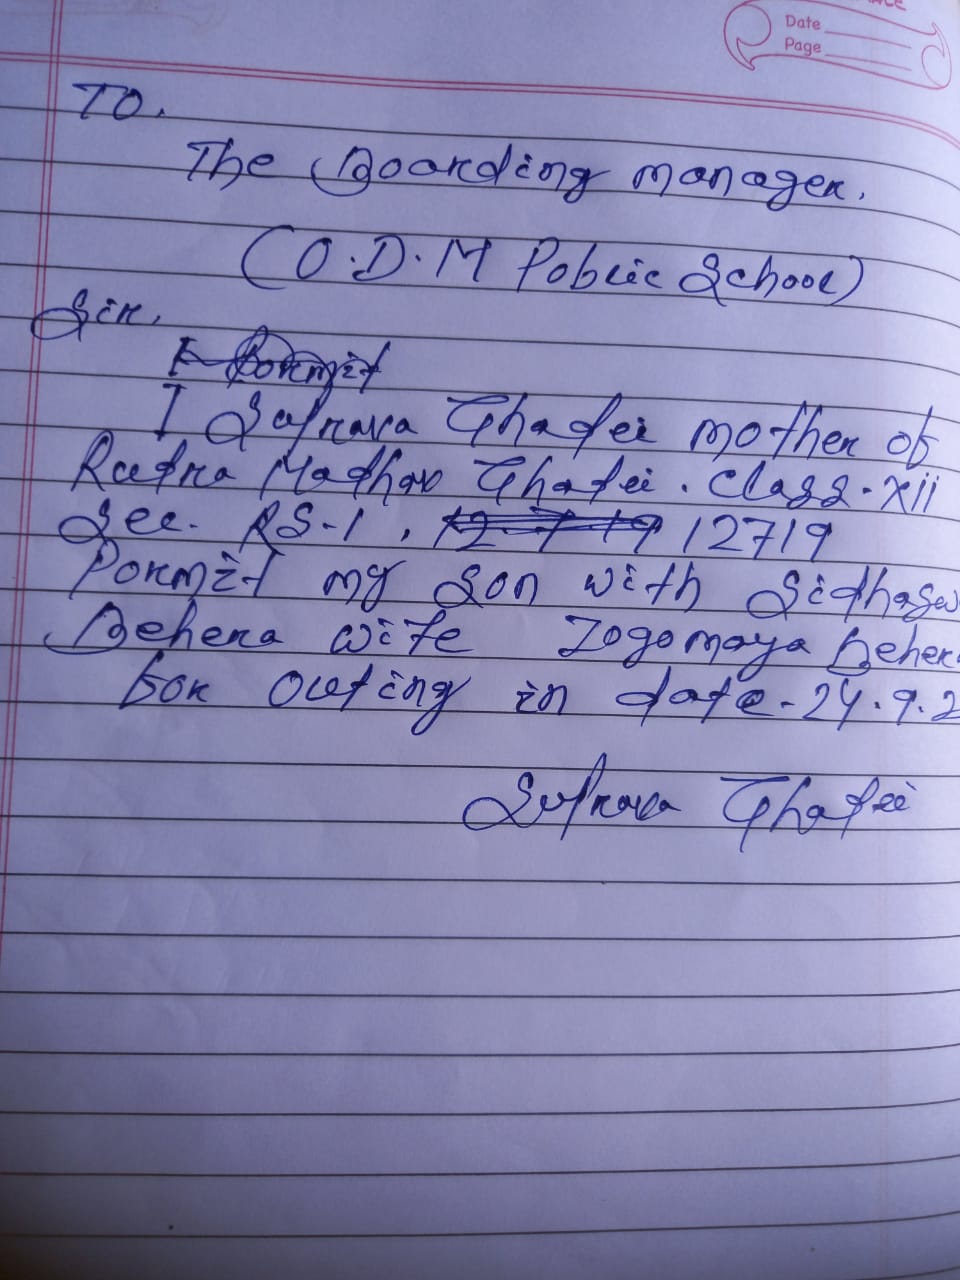 Date
Page
TO.
The Boarding manager.
(O.D.M Poblic School)
Sir,
I Permit
I Suprava Ghadei mother of
Rudra Madhav Ghadei. Class-XII
Sec. RS-1, 12719 12719
Pormit my son with
Behera wife Jogomaya
For outing in date-24.9.2
Suprava Ghadei